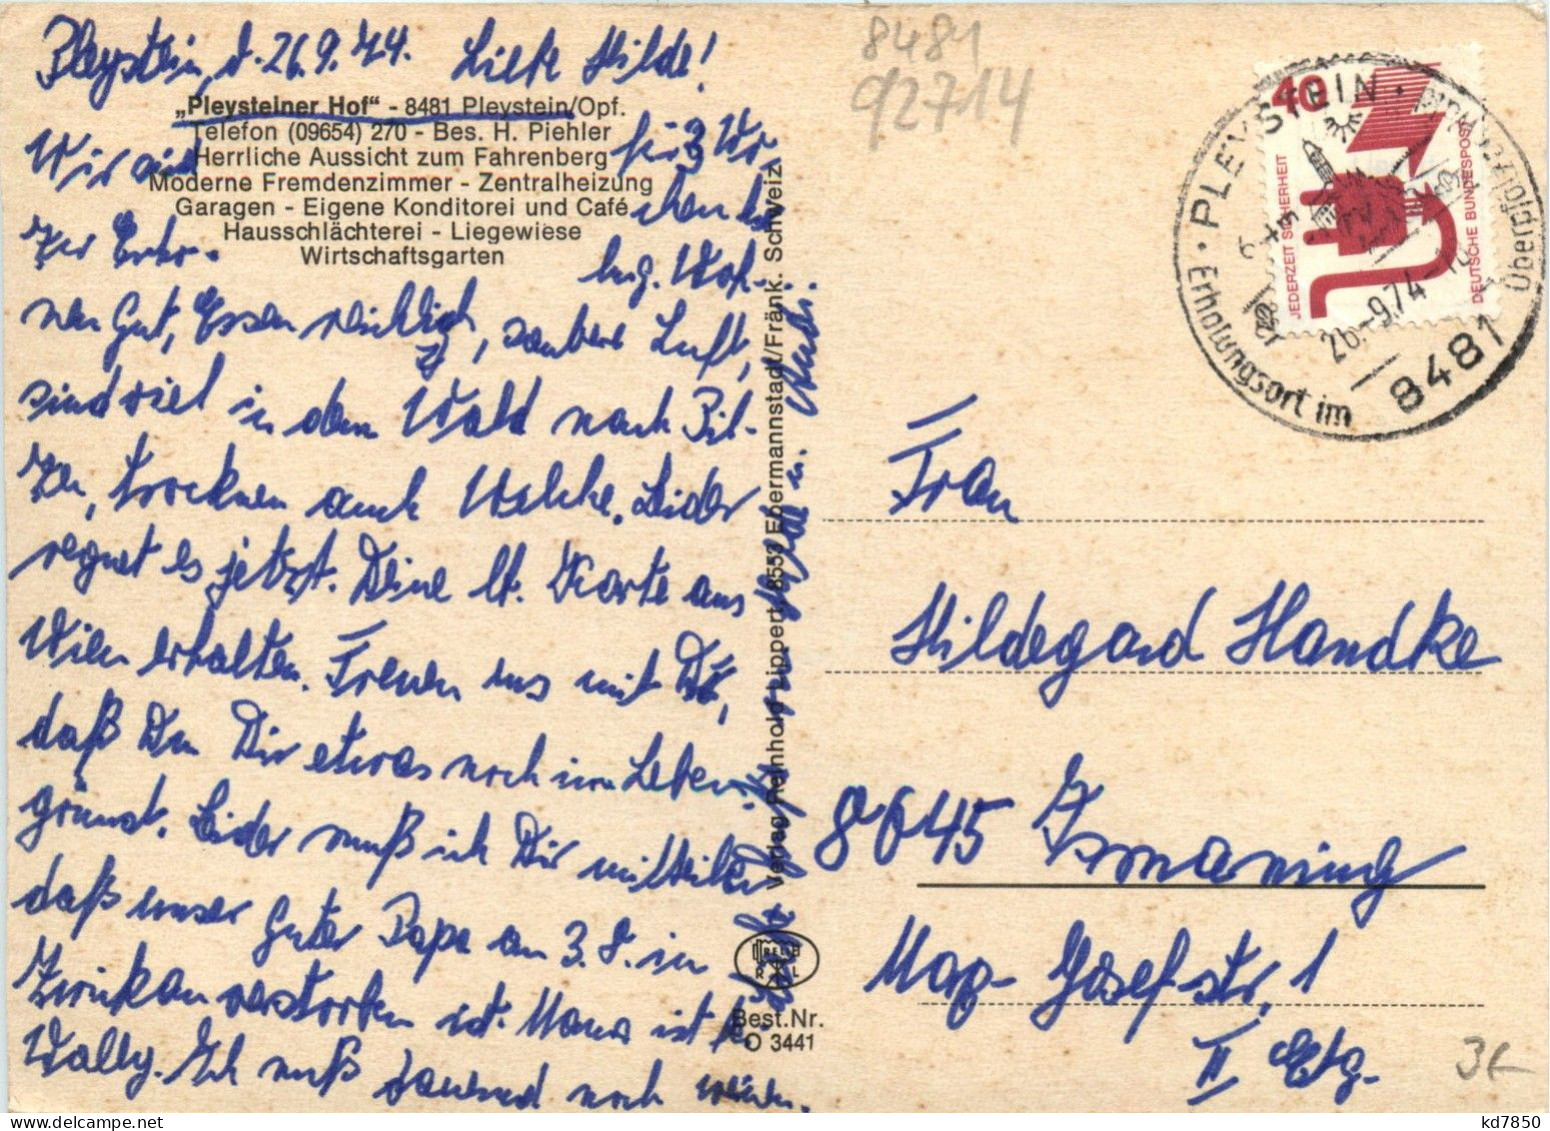 Pleystein, d. 26.9.74. Liebe Hilde!
„Pleysteiner Hof“ - 8481 Pleystein/Opf.
Telefon (09654) 270 - Bes. H. Piehler
Herrliche Aussicht zum Fahrenberg
Moderne Fremdenzimmer - Zentralheizung
Garagen - Eigene Konditorei und Café
Hausschlächterei - Liegewiese
Wirtschaftsgarten
Wir sind für 3 Wo-
chen hier
zur Erho-
lung. Woh-
nen Gut, Essen reichlich, saubere Luft,
sind viel in dem Wald nach Pil-
zen, trocknen auch welche. Leider
regnet es jetzt. Deine lt. Karte aus
Wien erhalten. Freuen uns mit Dir,
daß Du Dir etwas noch im Leben
gönnst. Leider muß ich Dir mitteilen
daß unser Guter Papa am 3.8. in
verstorben ist. Mama ist bei
Wally. Ich muß dauernd noch
Verlag Reinhold Lippert, 8553 Ebermannstadt/Fränk. Schweiz
Best.Nr.
O 3441
8481
92714
40
JEDERZEIT SICHERHEIT
DEUTSCHE BUNDESPOST
PLEYSTEIN
Erholungsort im
26.-9.74
8481
Frau
Hildegard Handke
8045 Ismaning
Max-Josefstr. 1
II Etg.
3€
kd7850